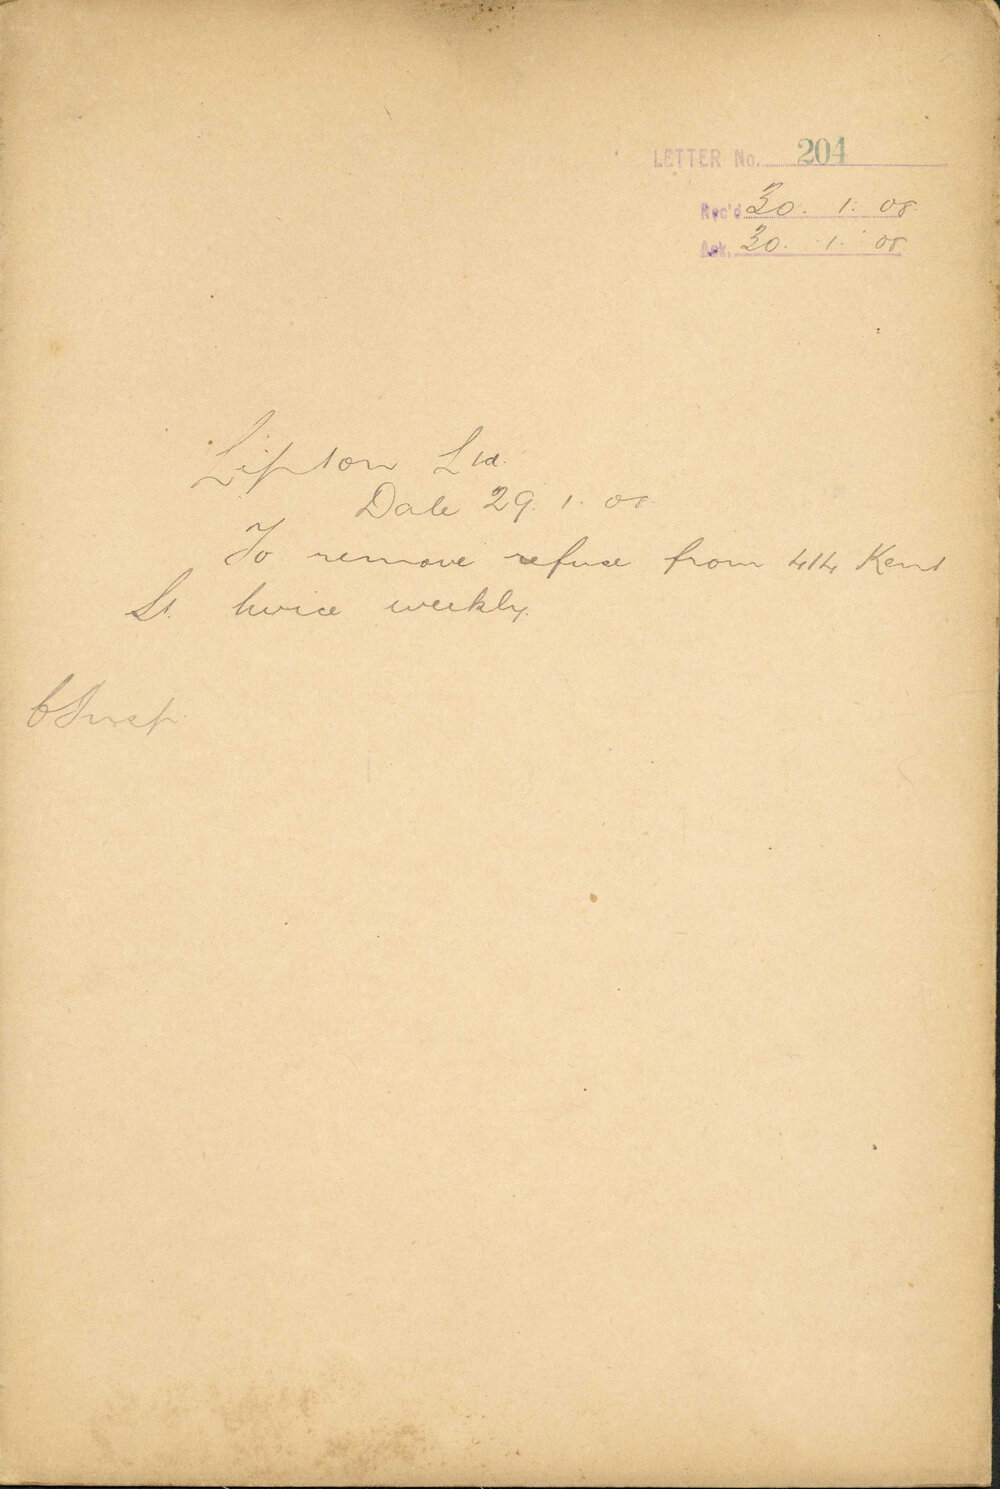 LETTER No. 204
Rec'd 30. 1. 08.
Ack. 30. 1. 08
Lipton Ltd.
Date 29. 1. 08.
To remove refuse from 414 Kent
St. twice weekly.
C Insp